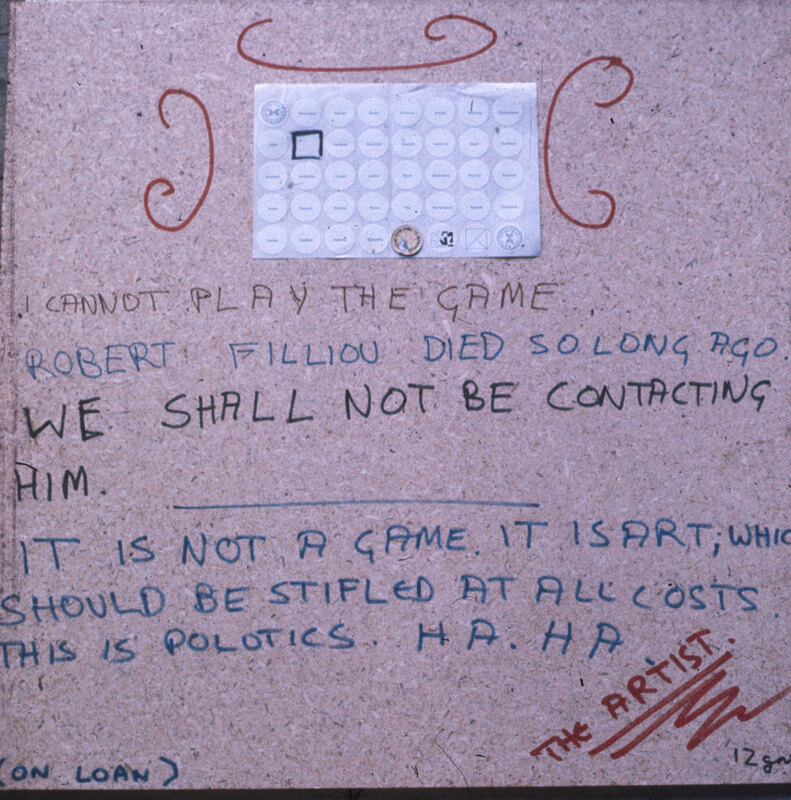 I CANNOT PLAY THE GAME
ROBERT FILLIOU DIED SO LONG AGO.
WE SHALL NOT BE CONTACTING
HIM.
IT IS NOT A GAME. IT IS ART; WHIC
SHOULD BE STIFLED AT ALL COSTS.
THIS IS POLOTICS. HA. HA
THE ARTIST.
(ON LOAN)
12gn